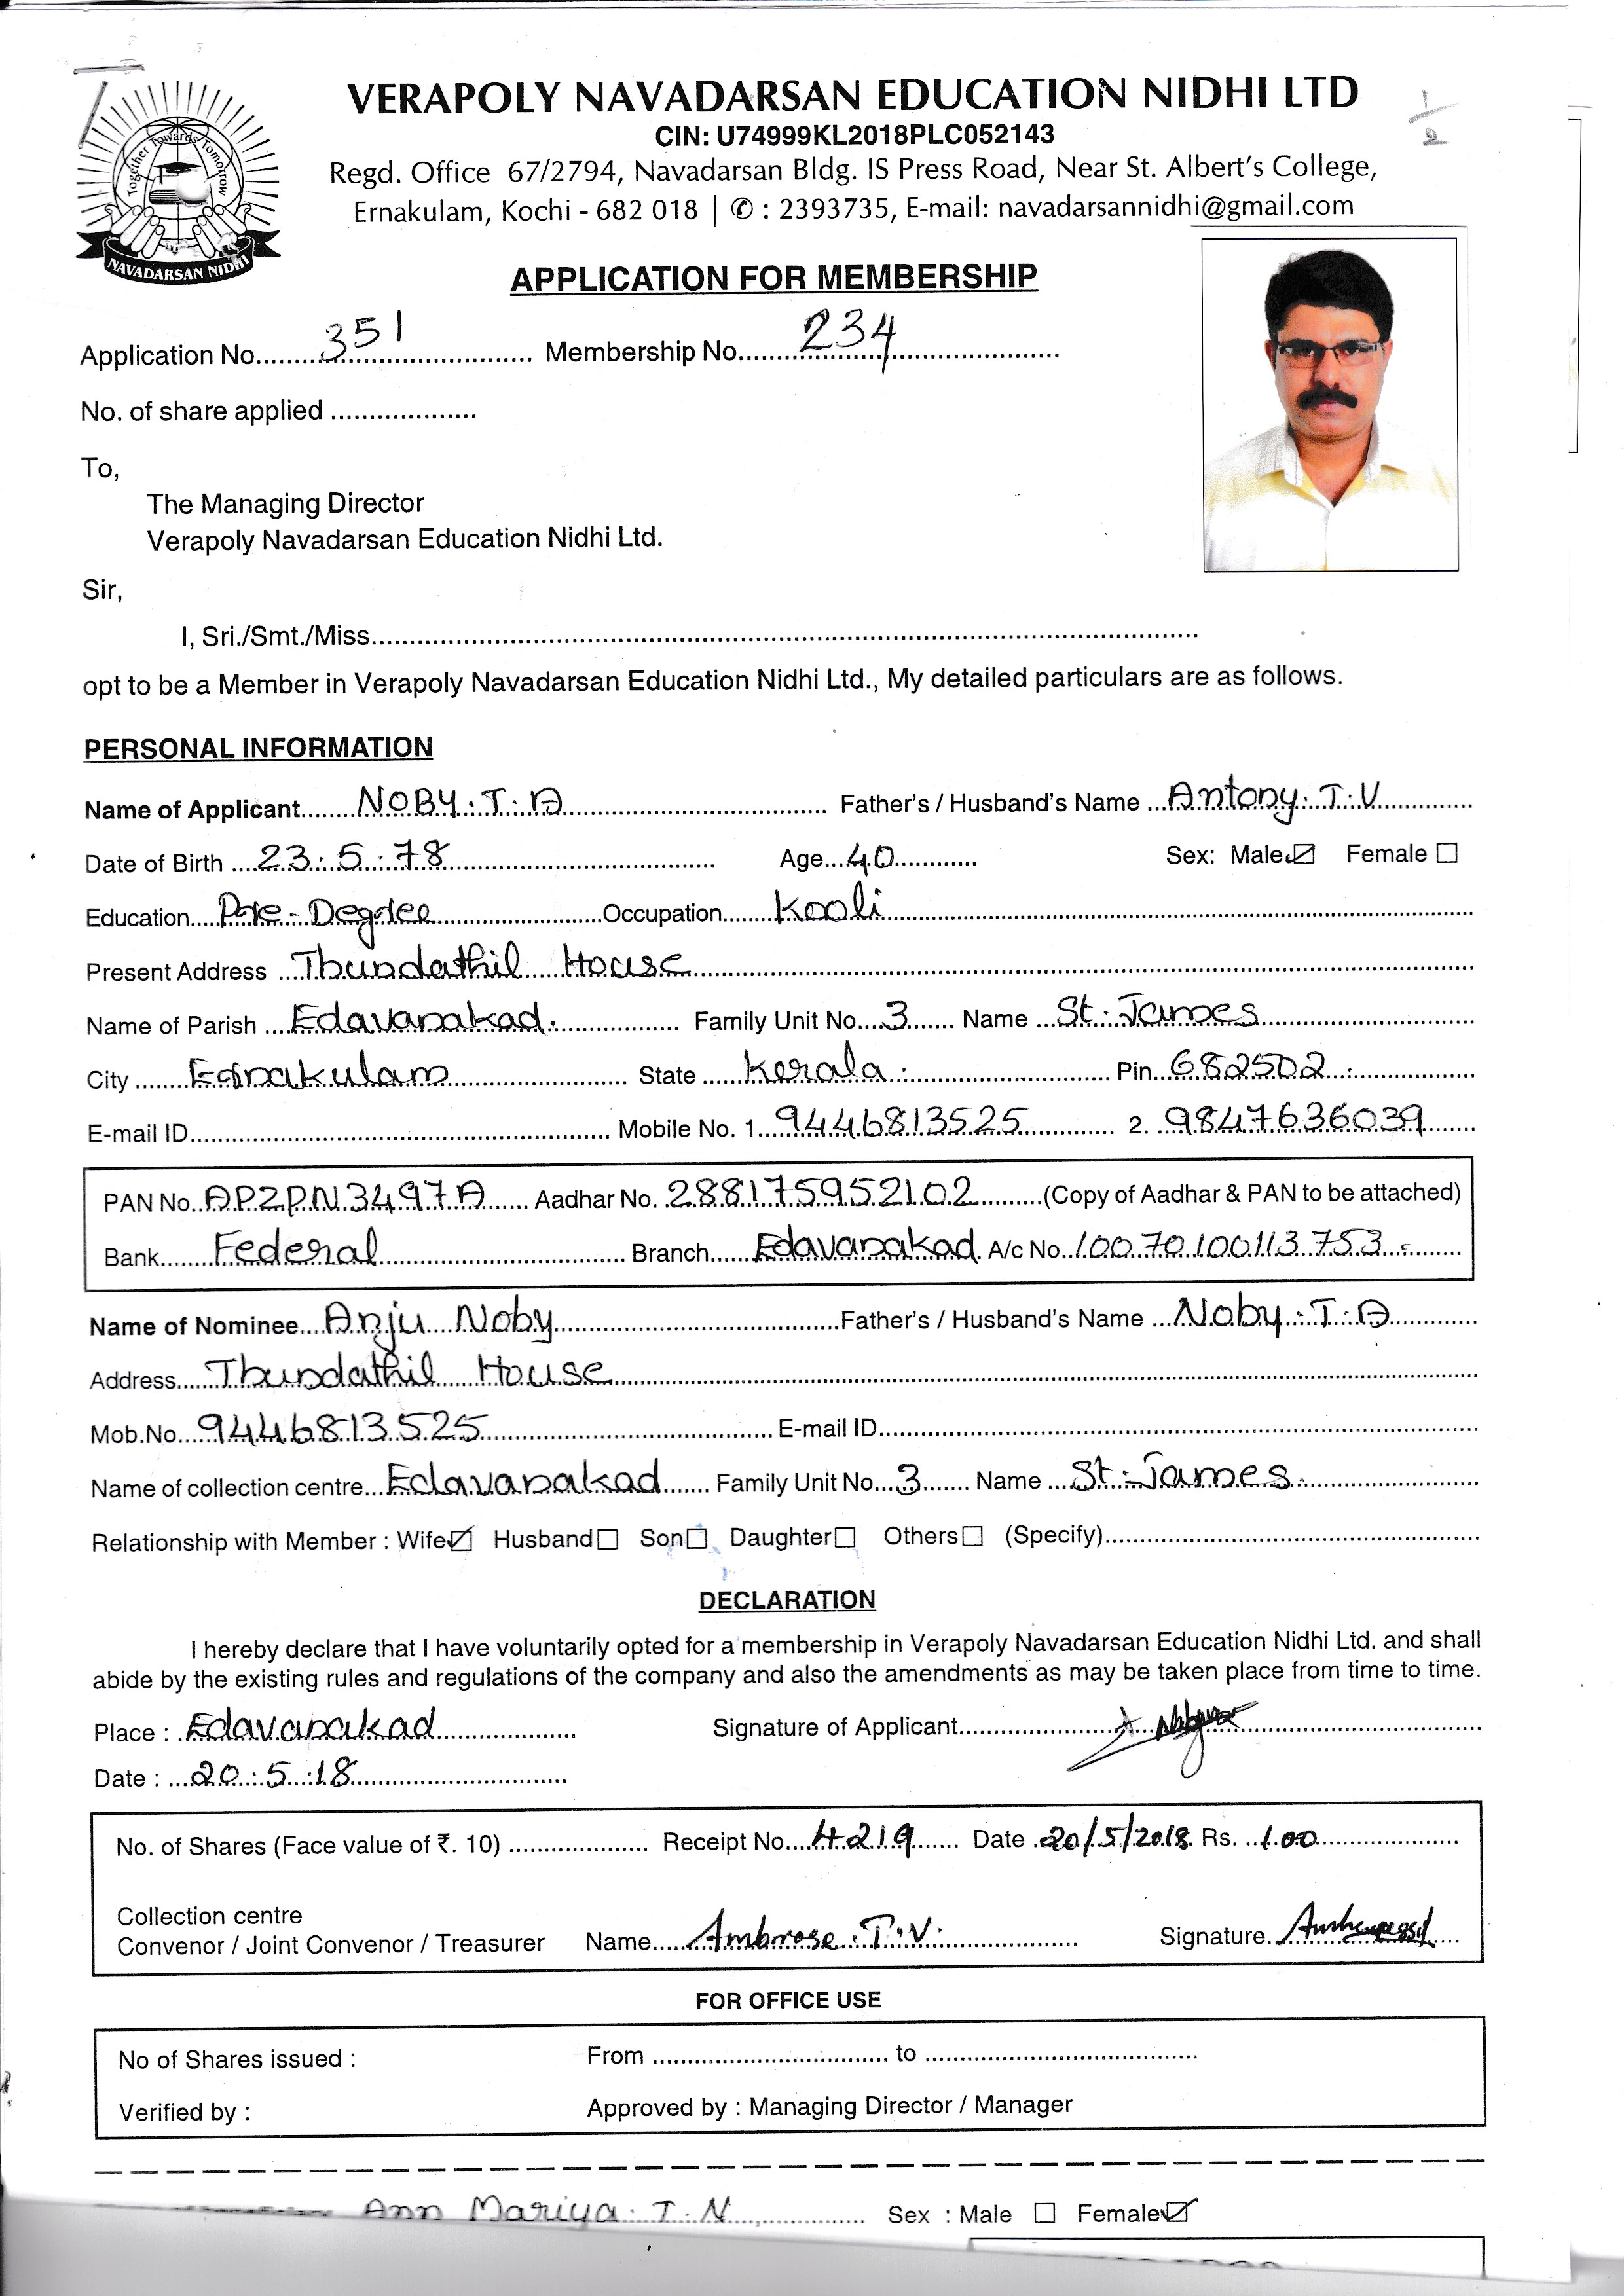 VERAPOLY NAVADARSAN EDUCATION NIDHI LTD
CIN: U74999KL2018PLC052143
Regd. Office 67/2794, Navadarsan Bldg. IS Press Road, Near St. Albert's College,
Ernakulam, Kochi - 682 018 | ✆ : 2393735, E-mail: navadarsannidhi@gmail.com
Together Towards Tomorrow
NAVADARSAN NIDHI
APPLICATION FOR MEMBERSHIP
Application No. 351 Membership No. 234
No. of share applied
To,
The Managing Director
Verapoly Navadarsan Education Nidhi Ltd.
Sir,
I, Sri./Smt./Miss
opt to be a Member in Verapoly Navadarsan Education Nidhi Ltd., My detailed particulars are as follows.
PERSONAL INFORMATION
Name of Applicant NOBY.T.A Father's / Husband's Name Antony.T.V
Date of Birth 23.5.78 Age 40 Sex: Male ☑ Female ☐
Education Pre-Degree Occupation Kooli
Present Address Thundathil House
Name of Parish Edavanakad. Family Unit No. 3 Name St.James
City Ernakulam State Kerala. Pin 682502
E-mail ID Mobile No. 1. 9446813525 2. 9847636039
PAN No. APZPN3497A Aadhar No. 288175952102 (Copy of Aadhar & PAN to be attached)
Bank Federal Branch Edavanakad A/c No. 10070100113753
Name of Nominee Anju Noby Father's / Husband's Name Noby.T.A
Address Thundathil House
Mob.No. 9446813525 E-mail ID
Name of collection centre Edavanakad Family Unit No. 3 Name St.James.
Relationship with Member : Wife ☑ Husband ☐ Son ☐ Daughter ☐ Others ☐ (Specify)
DECLARATION
I hereby declare that I have voluntarily opted for a membership in Verapoly Navadarsan Education Nidhi Ltd. and shall
abide by the existing rules and regulations of the company and also the amendments as may be taken place from time to time.
Place : Edavanakad Signature of Applicant
Date : 20.5.18
No. of Shares (Face value of ₹. 10) Receipt No. 4219 Date 20/5/2018 Rs. 100
Collection centre
Convenor / Joint Convenor / Treasurer Name Ambrose.T.V. Signature
FOR OFFICE USE
No of Shares issued : From to
Verified by : Approved by : Managing Director / Manager
Ann Mariya.T.N Sex : Male ☐ Female ☑